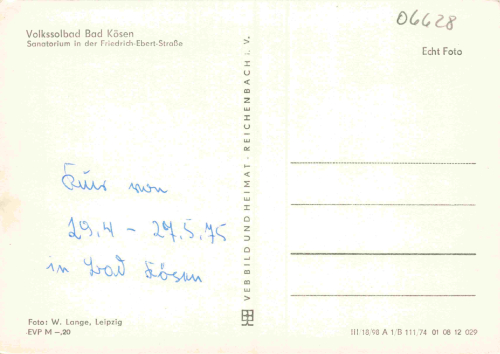 Volkssolbad Bad Kösen
Sanatorium in der Friedrich-Ebert-Straße
06628
Echt Foto
Kur von
29.4 – 27.5.75
in Bad Kösen
VEB BILD UND HEIMAT · REICHENBACH i. V.
Foto: W. Lange, Leipzig
EVP M –.20
III 18/98 A 1/B 111/74 01 08 12 029